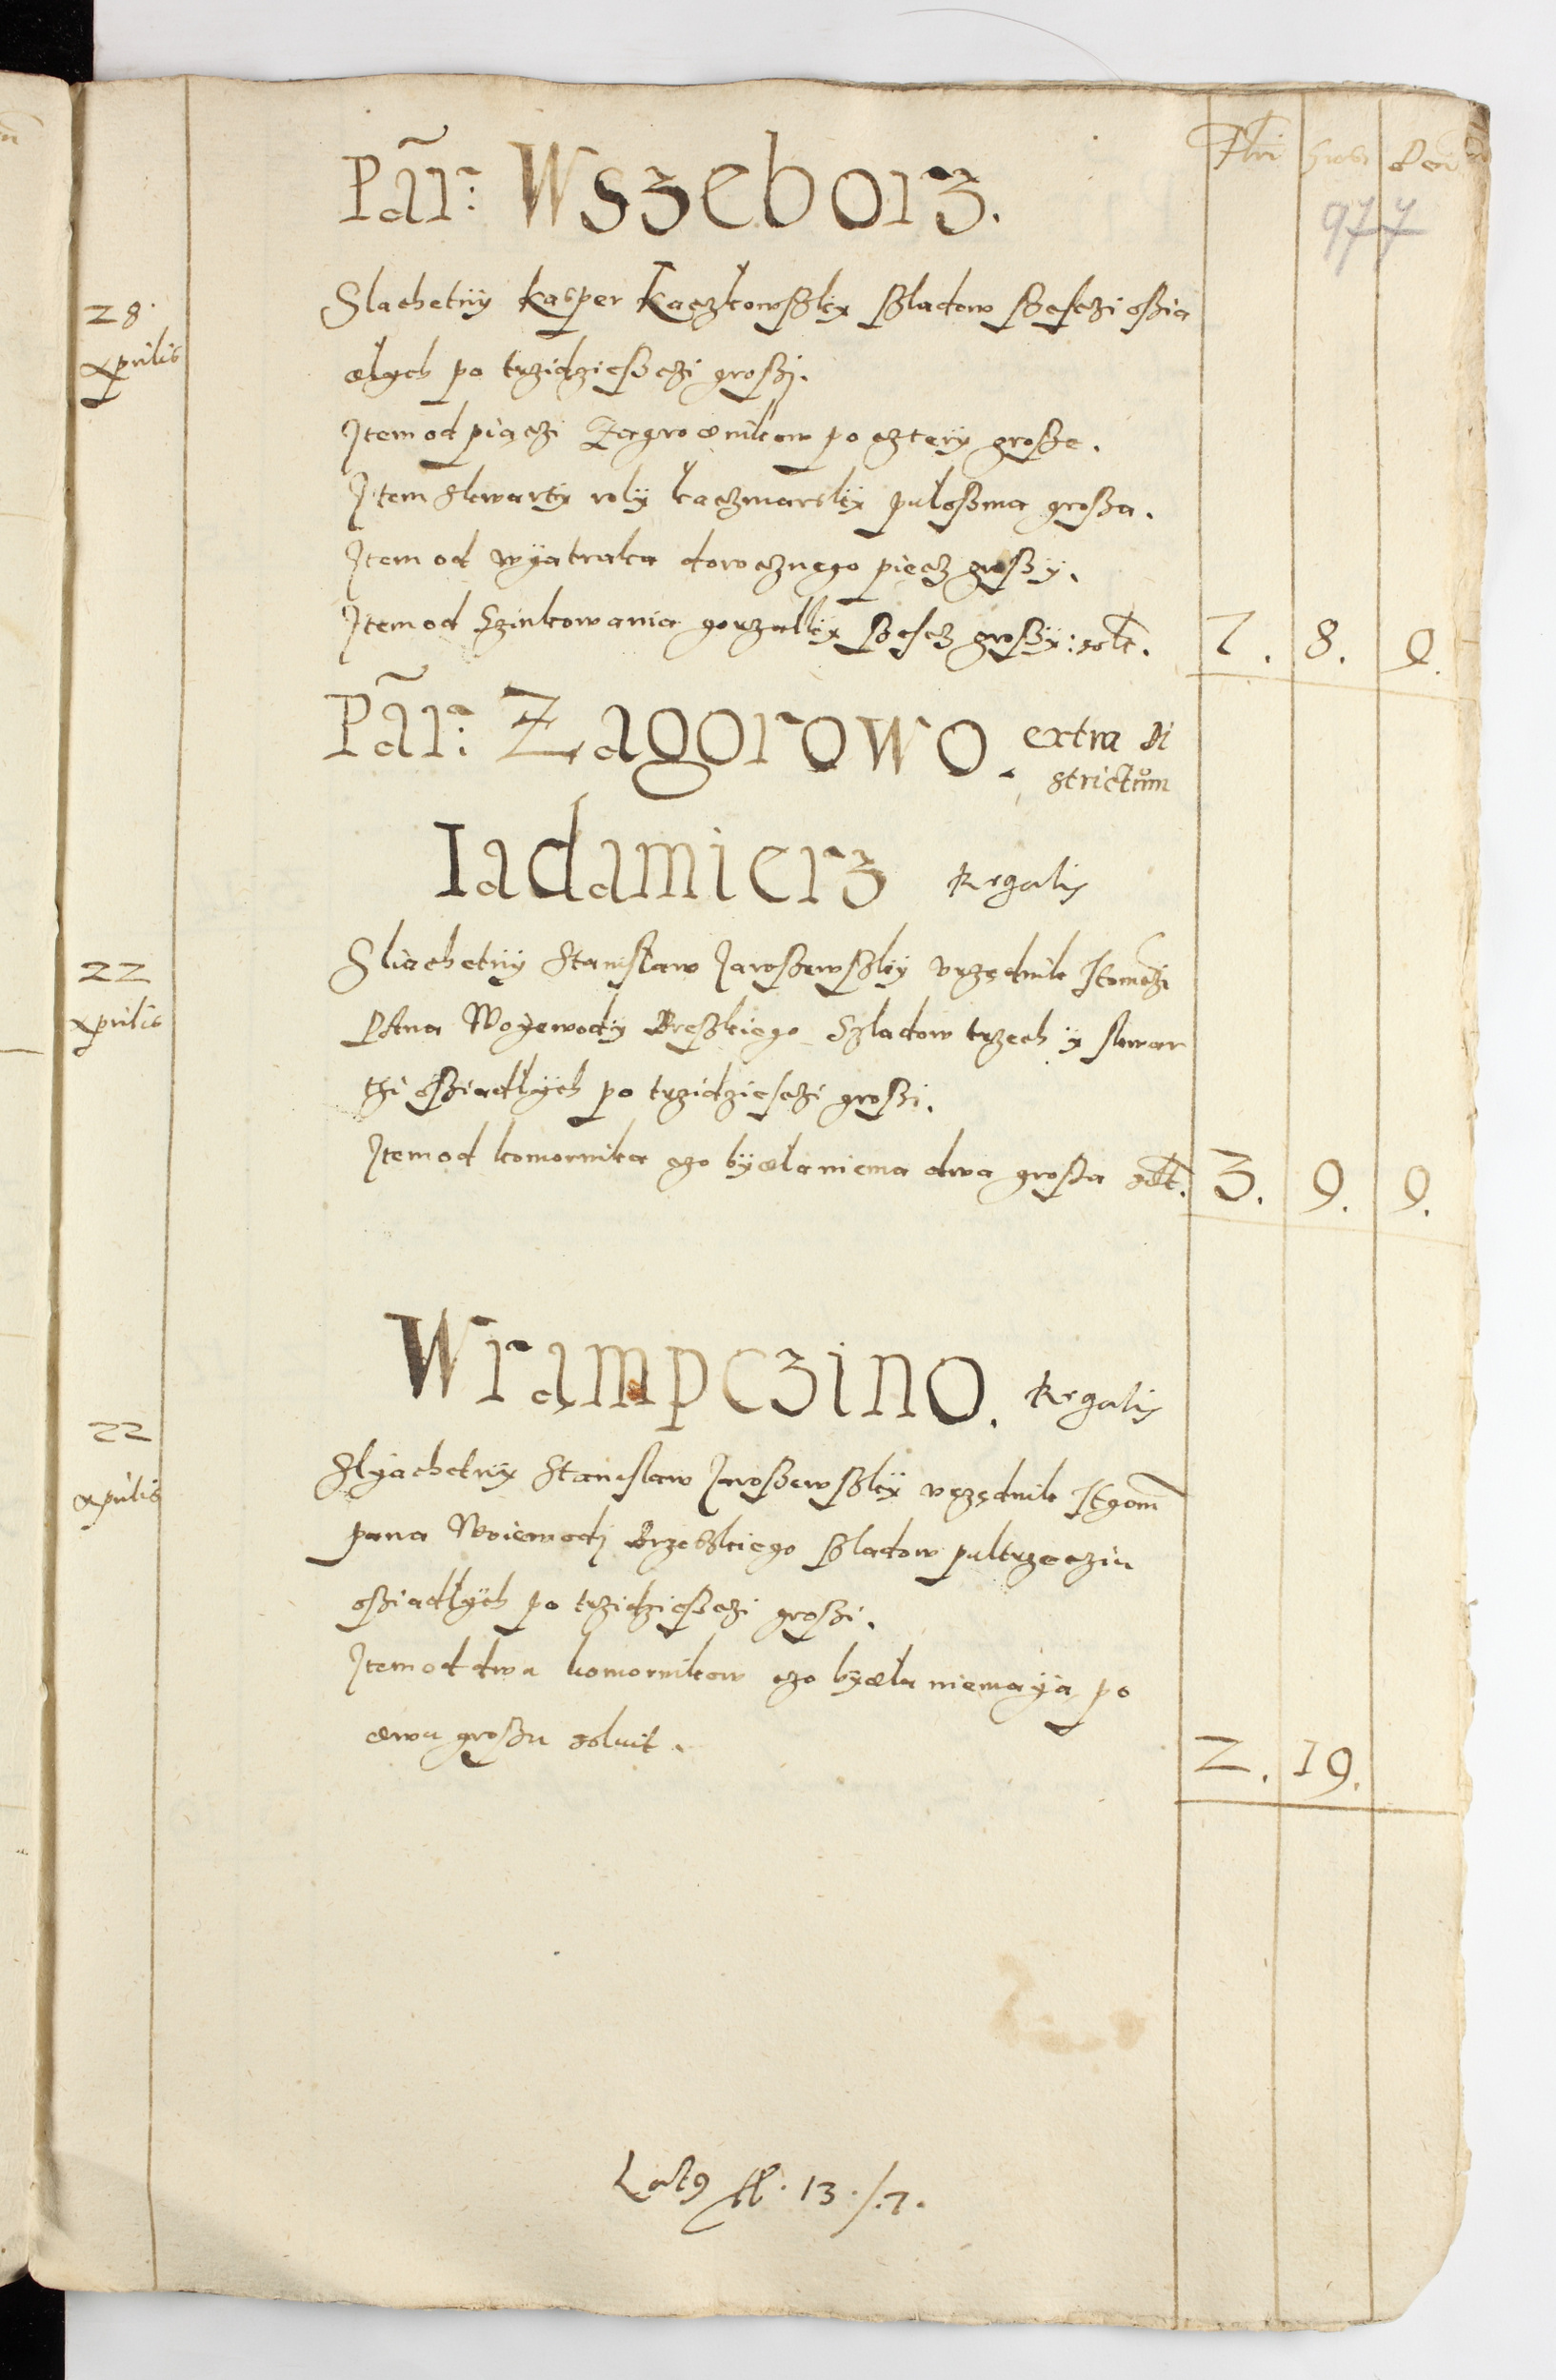 Flri gros den
977
Pãr: Wszeborz.
28.
Aprilis
Slachetny Kasper Kaczkowsky sladow szesczi ossia
dlych po trzidziesczi grossj.
Item od piąchi Zagrodnikow po cztery grosse.
Item skwarty roly kaczmarsky pulossma grossa.
Item od wyatraka dorocznego piecz grossy.
Item od Szinkowania gorzalky szescz grossy: solt. 7. 8. 9.
Pãr: Zagorowo. extra di
strictum
Iadamierz Regalis
22
Aprilis
Sliachetny Stanislaw Jarossewsky vrzędnik Jkomczi
Pana Woyewody Breskiego Szladow trzech y skwar
thi ossiadlych po trzidziesczi grossi.
Item od komornika czo bydla niema dwa grossa solt. 3. 9. 9.
Wrąmpczino. Regalis
22
Aprilis
Slyachetny Stanislaw Jarossewsky vrzędnik Jegom
pana Woiewody Brzeskiego sladow pultrzeciu
ossiadlych po trzidziesczi grossi.
Item od dwu komornikow czo bydla niemayą po
dwu grossu soluit. 2. 19.
Lat9 fl. 13 /.7.